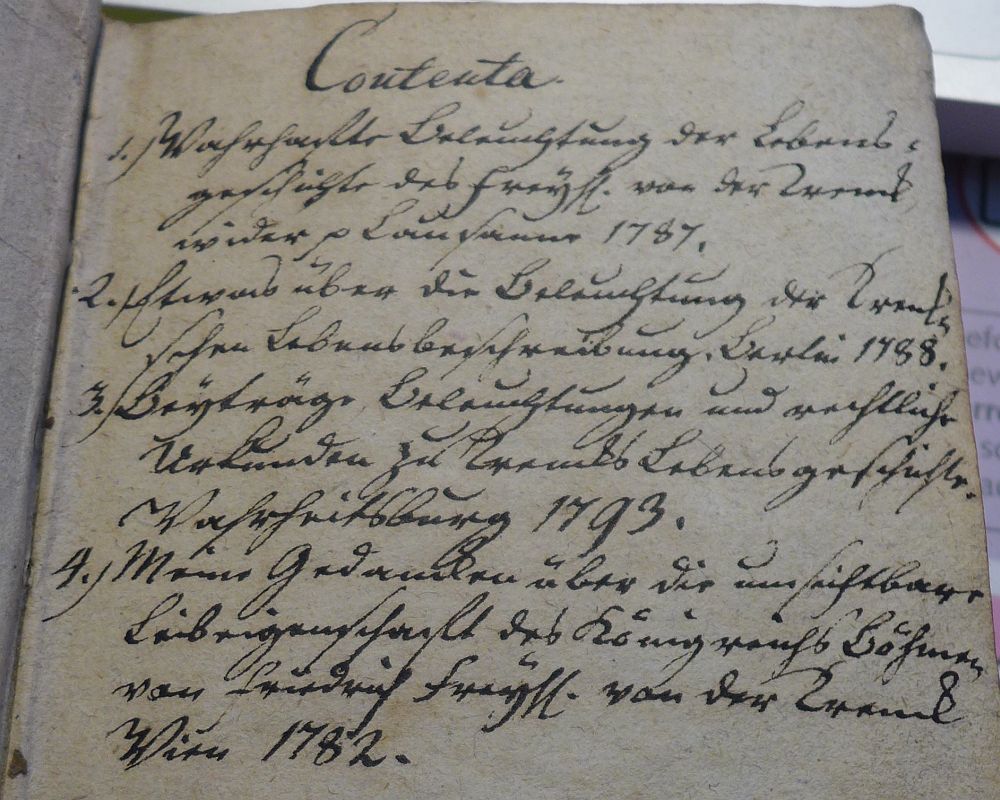 Contenta.
1.) Wahrhaffte Beleuchtung der Lebens-
geschichte des Freyh. von der Trenck
wider p Lausanne 1787.
2.) Etwas über die Beleuchtung der Trenck-
schen Lebensbeschreibung. Berlin 1788.
3.) Beyträge, Beleuchtungen und rechtliche
Urkunden zu Trencks Lebensgeschichte.
Wahrheitsburg 1793.
4.) Meine Gedancken über die unsichtbare
Leibeigenschafft des Königreichs Böhmen
von Friedrich Freyh. von der Trenck
Wien 1782.